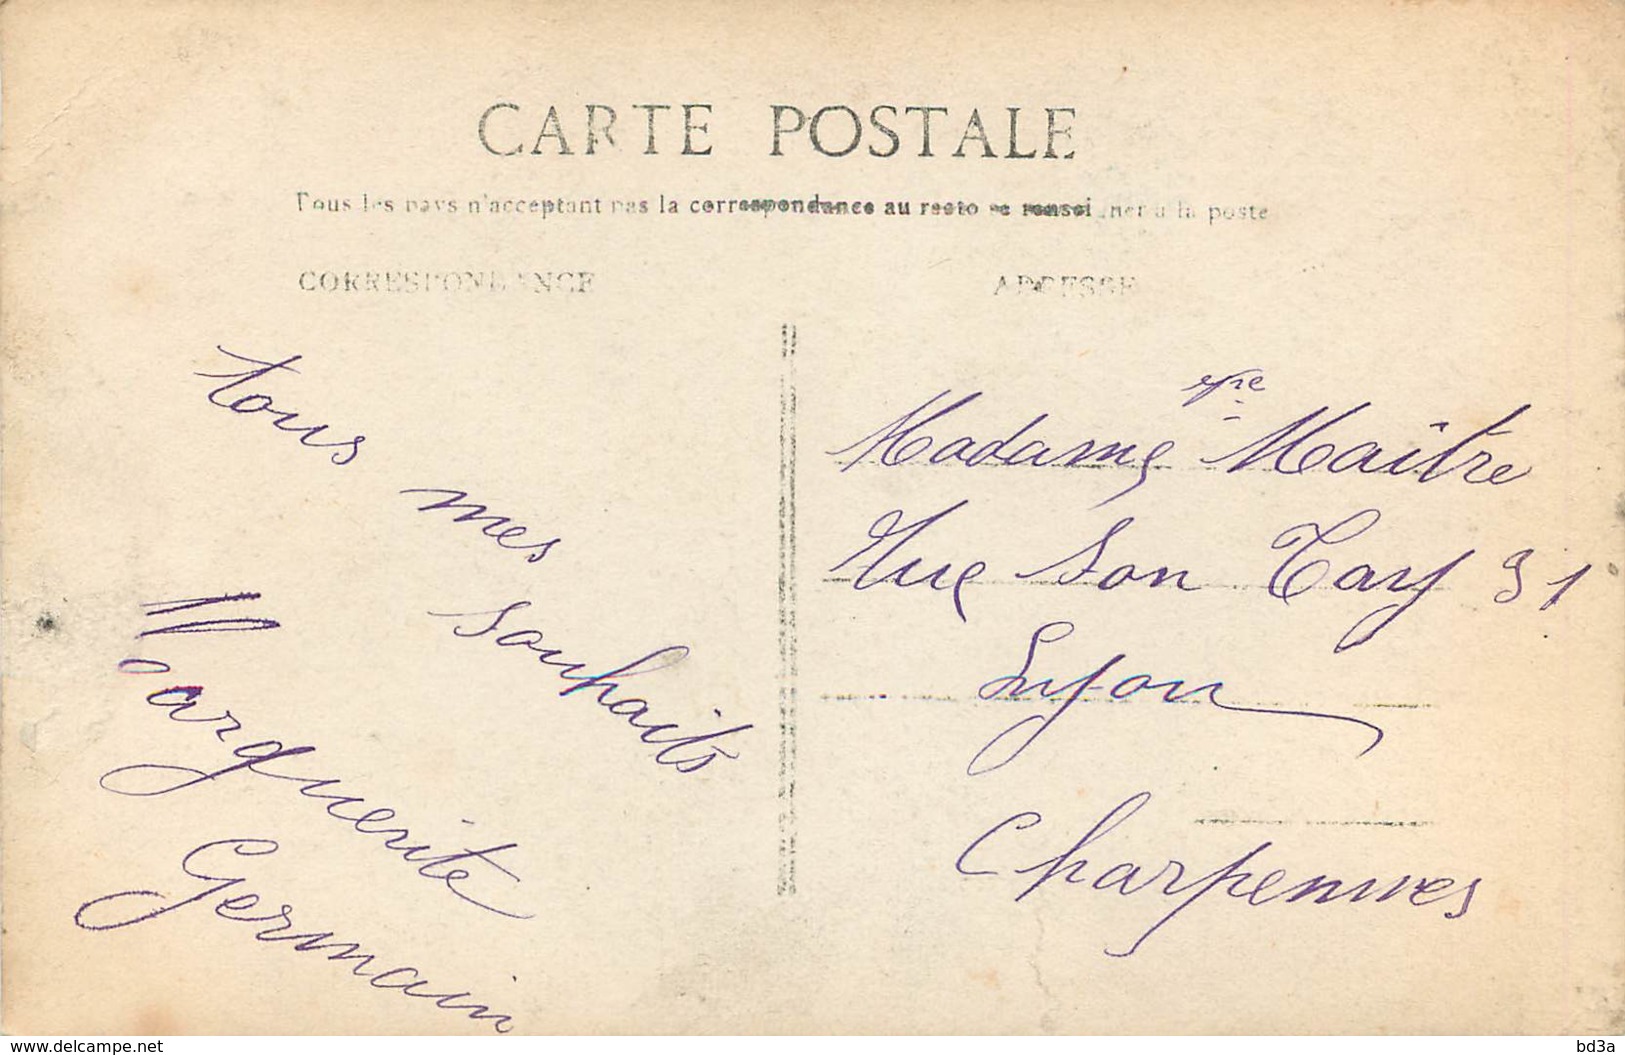 CARTE POSTALE
Tous les pays n'acceptent pas la correspondance au recto se renseigner à la poste
CORRESPONDANCE
ADRESSE
tous
mes
souhaits
Marguerite
Germain
Madame Maître
Rue Son Tay 31
Lyon
Charpennes
www.delcampe.net
bd3a